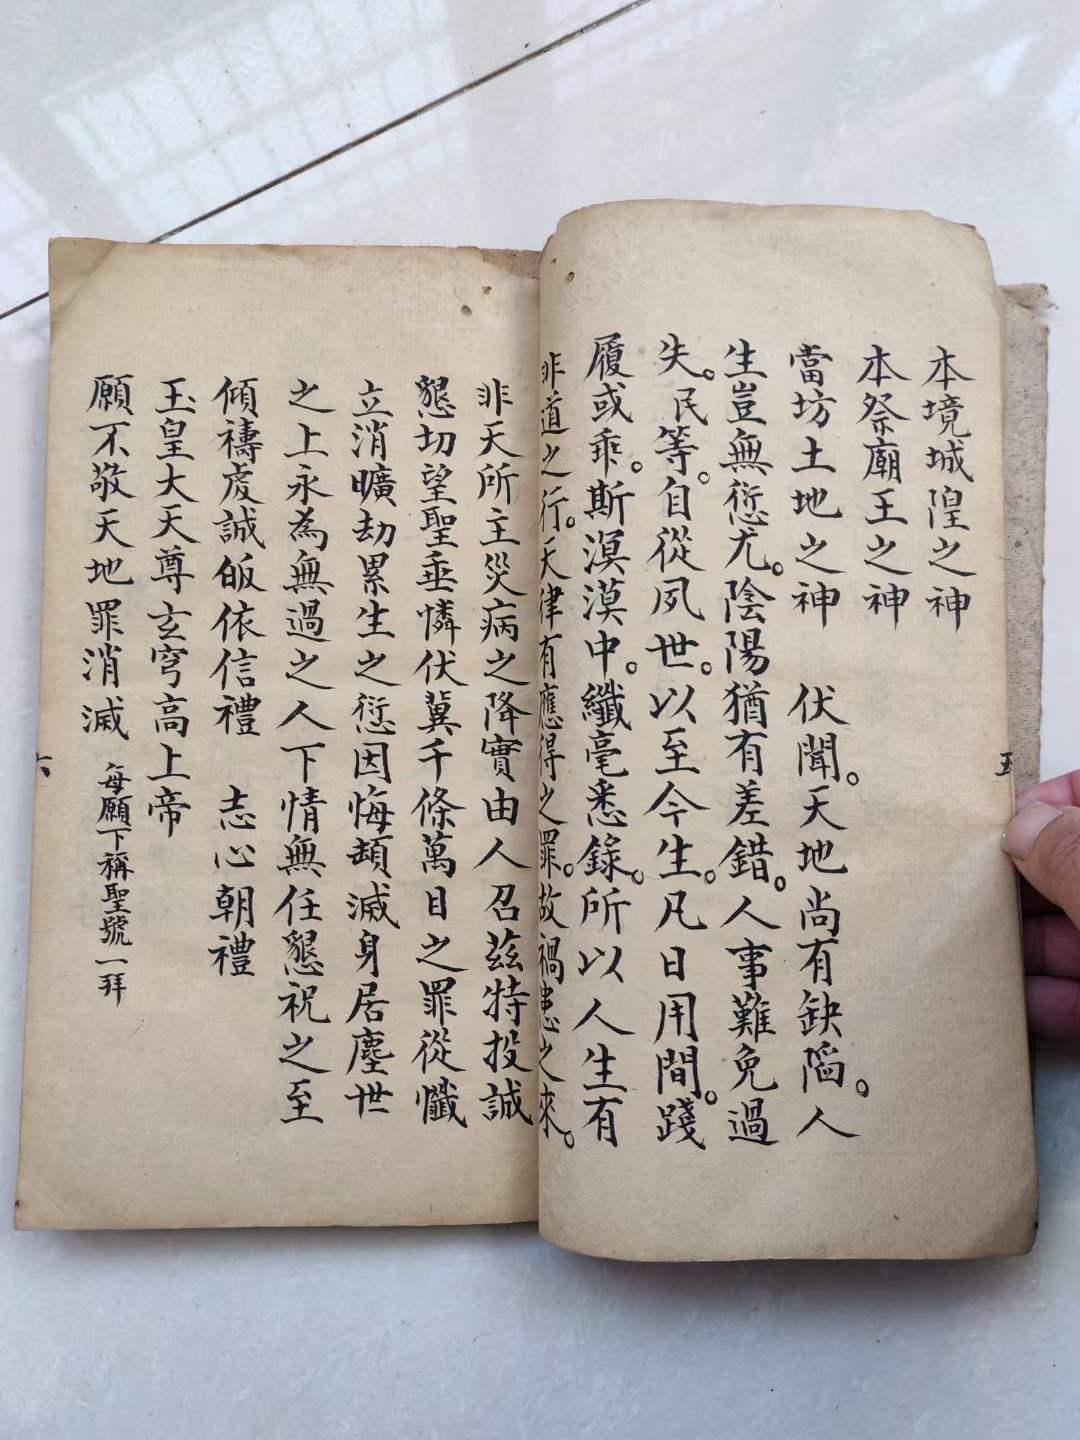 本境城隍之神
本祭廟王之神
當坊土地之神　伏聞。天地尚有缺陷。人
生豈無愆尤。陰陽猶有差錯。人事難免過
失。民等。自從夙世。以至今生。凡日用間。踐
履或乖。斯溟漠中。纖毫悉錄。所以人生有
非道之行。天律有應得之罪。故禍患之來。
非天所主災病之降實由人召茲特投誠
懇切望聖垂憐伏冀千條萬目之罪從懺
立消曠劫累生之愆因悔頓減身居塵世
之上永為無過之人下情無任懇祝之至
傾禱虔誠皈依信禮　志心朝禮
玉皇大天尊玄穹高上帝
願不敬天地罪消滅　每願下稱聖號一拜
五
六